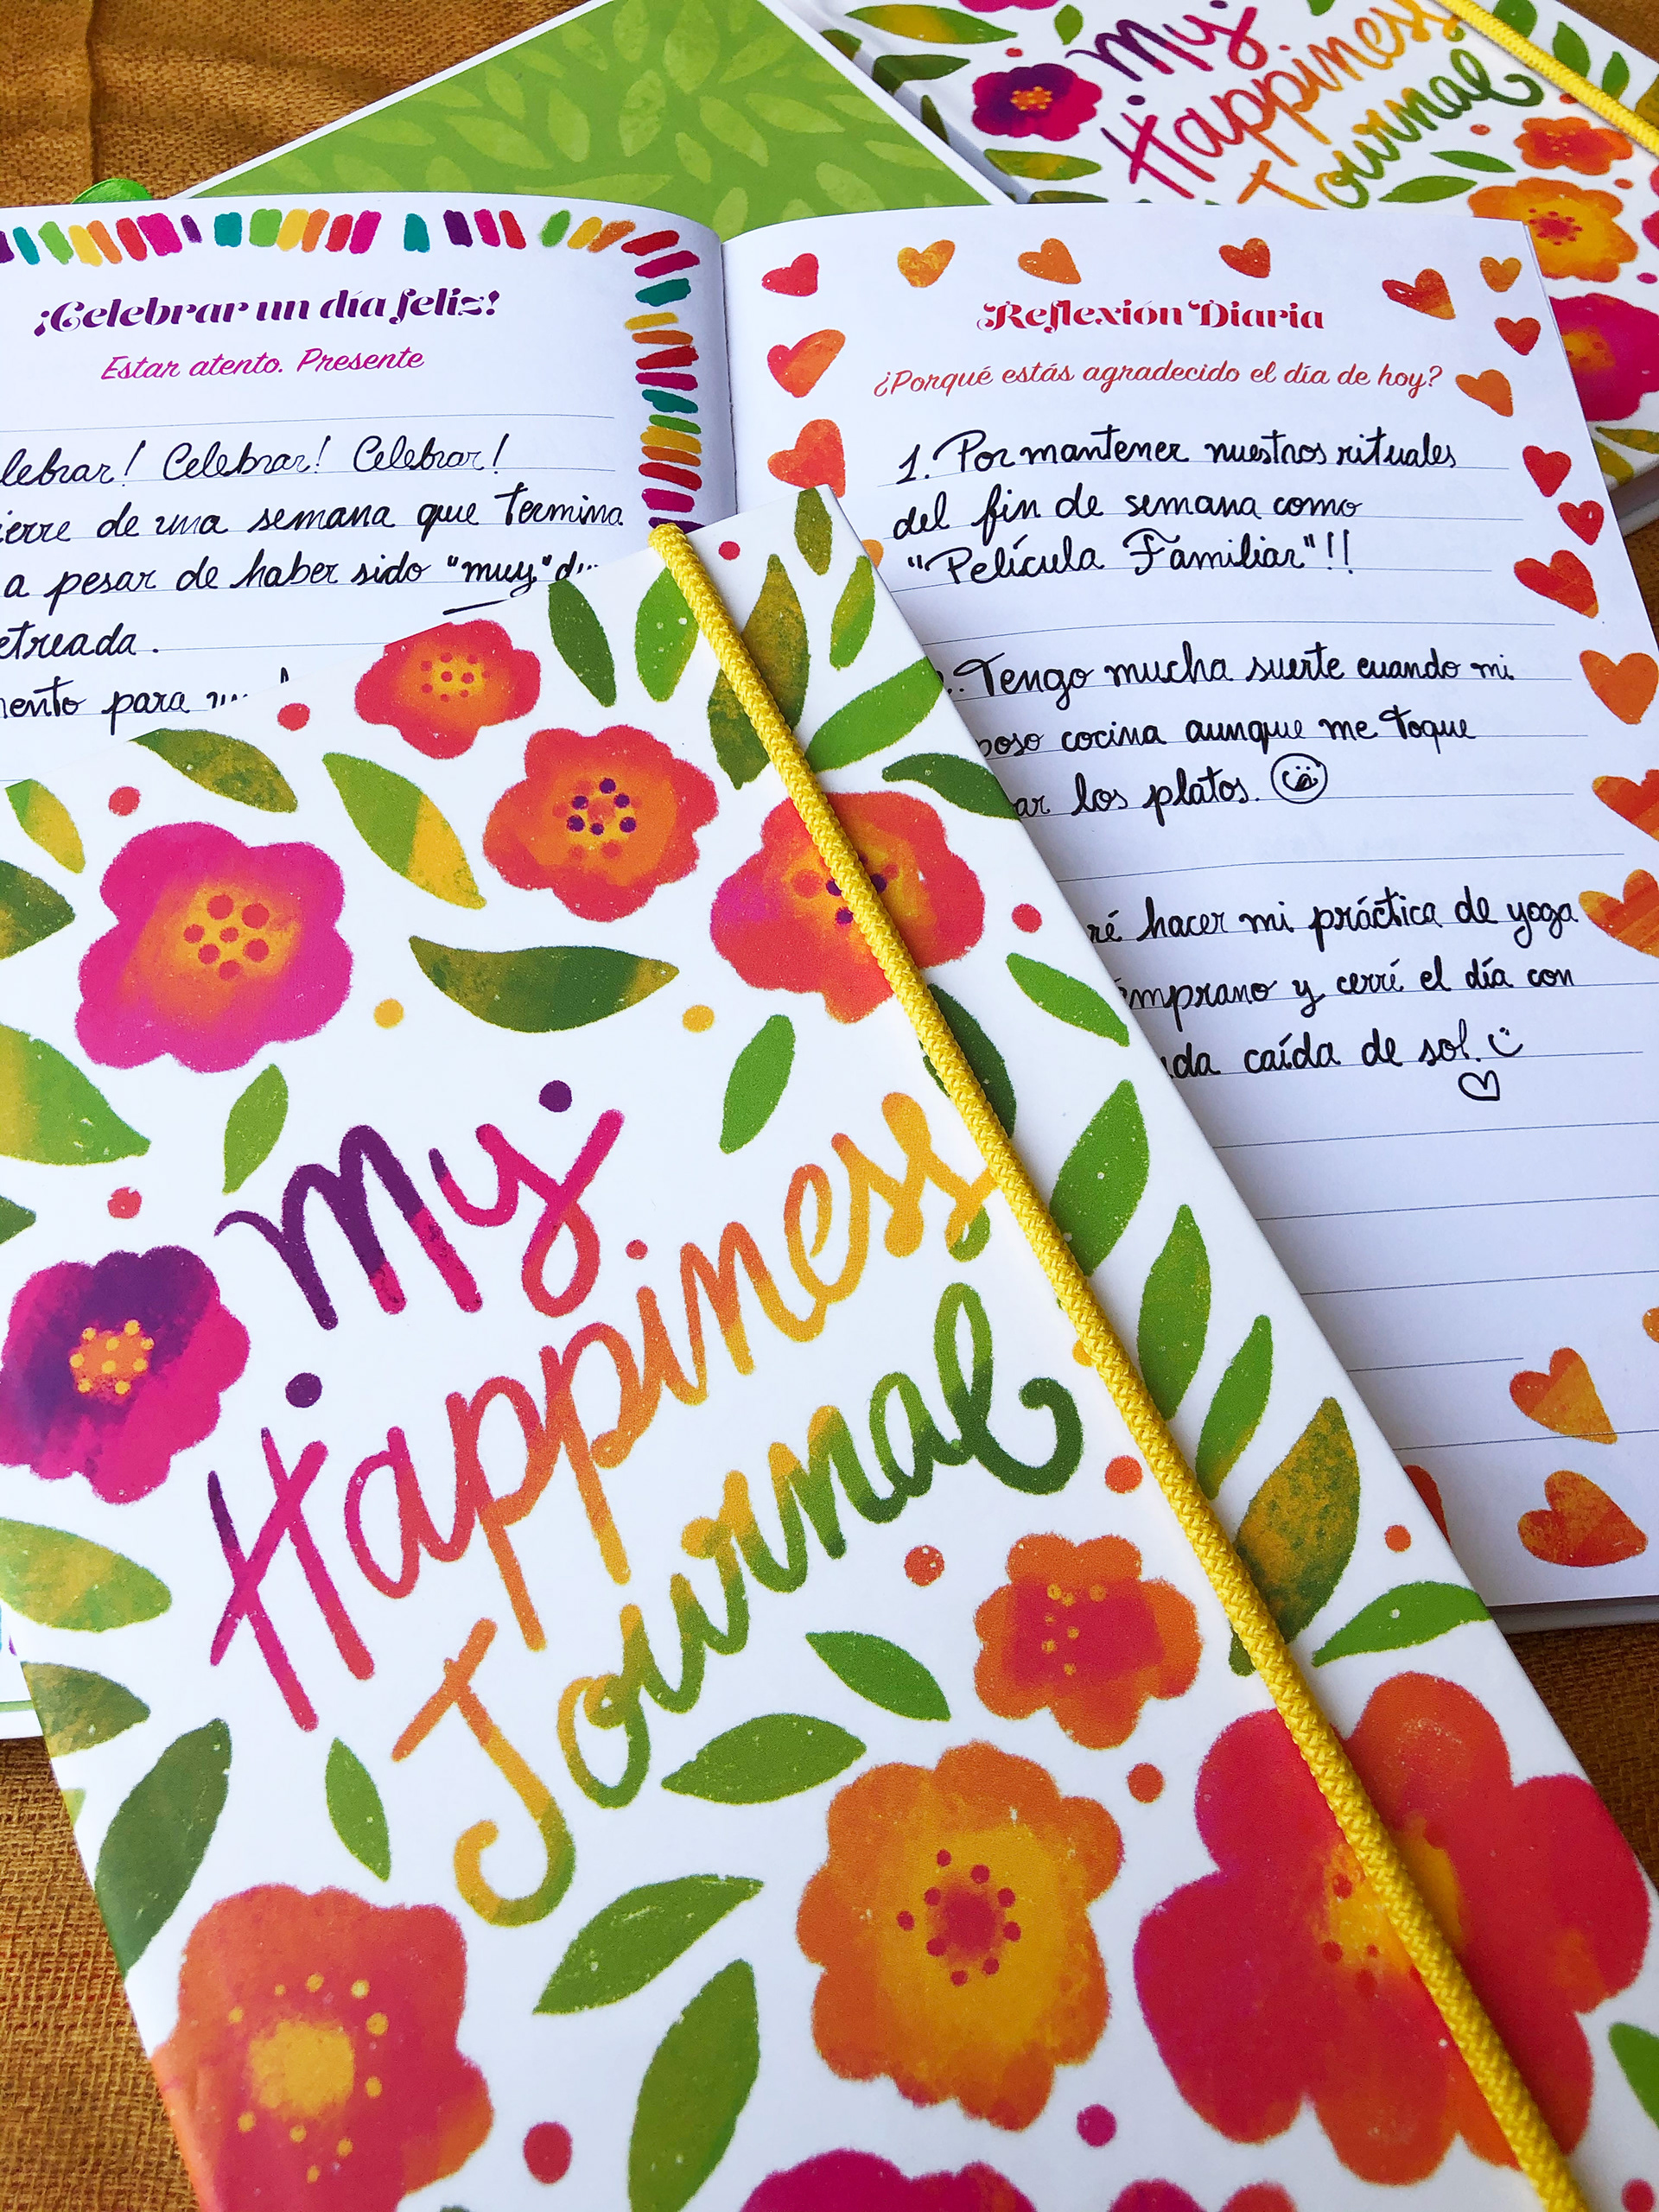 My
Happiness
Journal
¡Celebrar un día feliz!
Estar atento. Presente
Celebrar! Celebrar!
de una semana que termina
a pesar de haber sido "muy"
para
Reflexión Diaria
¿Porqué estás agradecido el día de hoy?
1. Por mantener nuestros rituales
del fin de semana como
"Película Familiar"!!
Tengo mucha suerte cuando mi
cocina aunque me toque
los platos.
hacer mi práctica de yoga
y cerré el día con
caída de sol.
My
Happiness
Journal